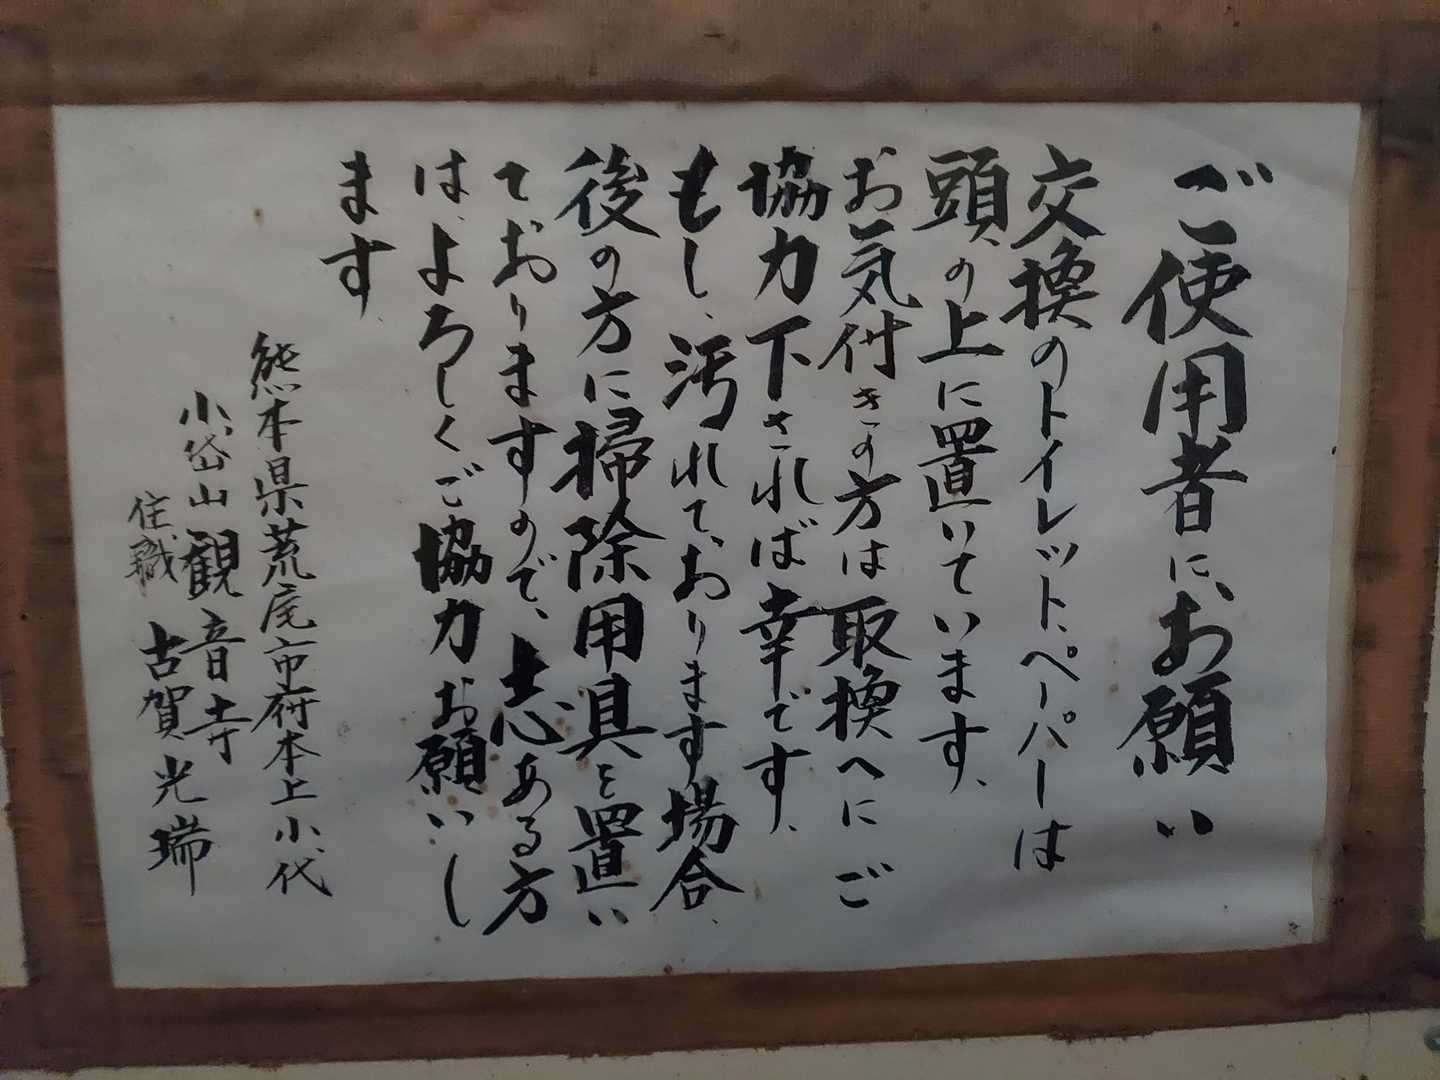 ご使用者に、お願い
交換のトイレット、ペーパーは
頭、の上に置いています、
お気付きの方は取換へにご
協力下されば幸です、
もし、汚れて、おります場合、
後の方に掃除用具を置い
ておりますので、志ある方
は、よろしくご協力お願いし
ます、
熊本県荒尾市府本上小代
小岱山観音寺
住職 古賀光瑞